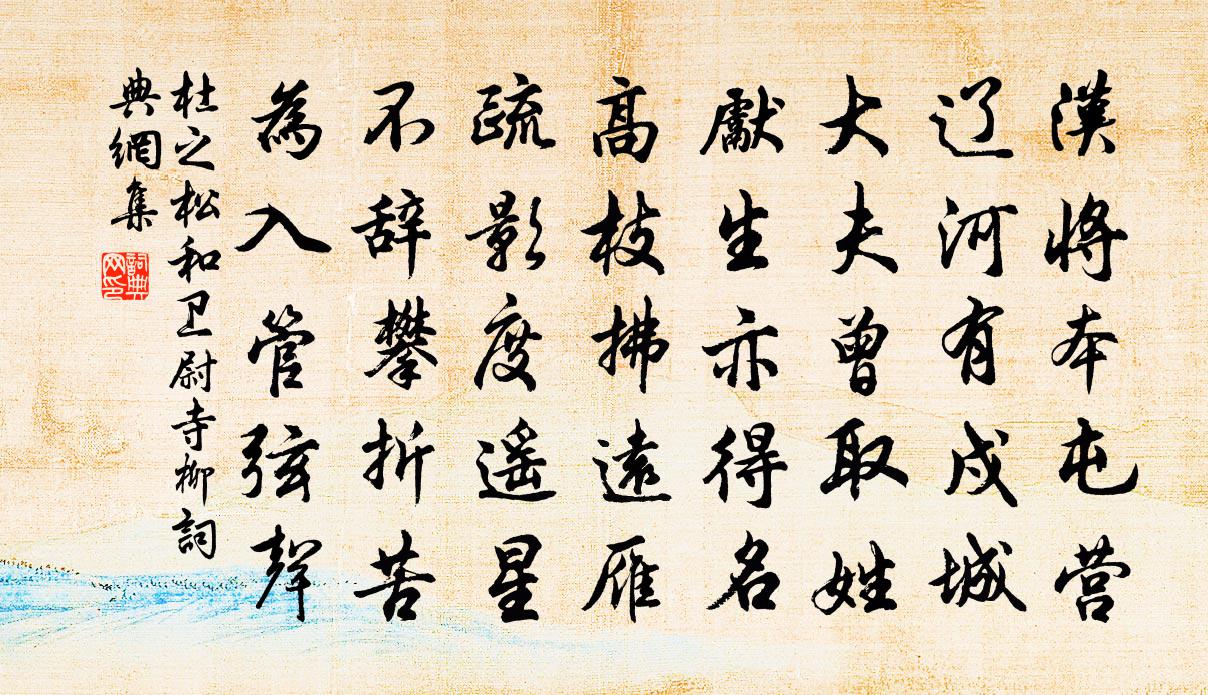 漢将本屯营
辽河有戍城
大夫曾取姓
獻生亦得名
高枝拂遠雁
疏影度遥星
不辞攀折苦
為入管弦聲
杜之松和卫尉寺柳詞
典網集
詞典网印